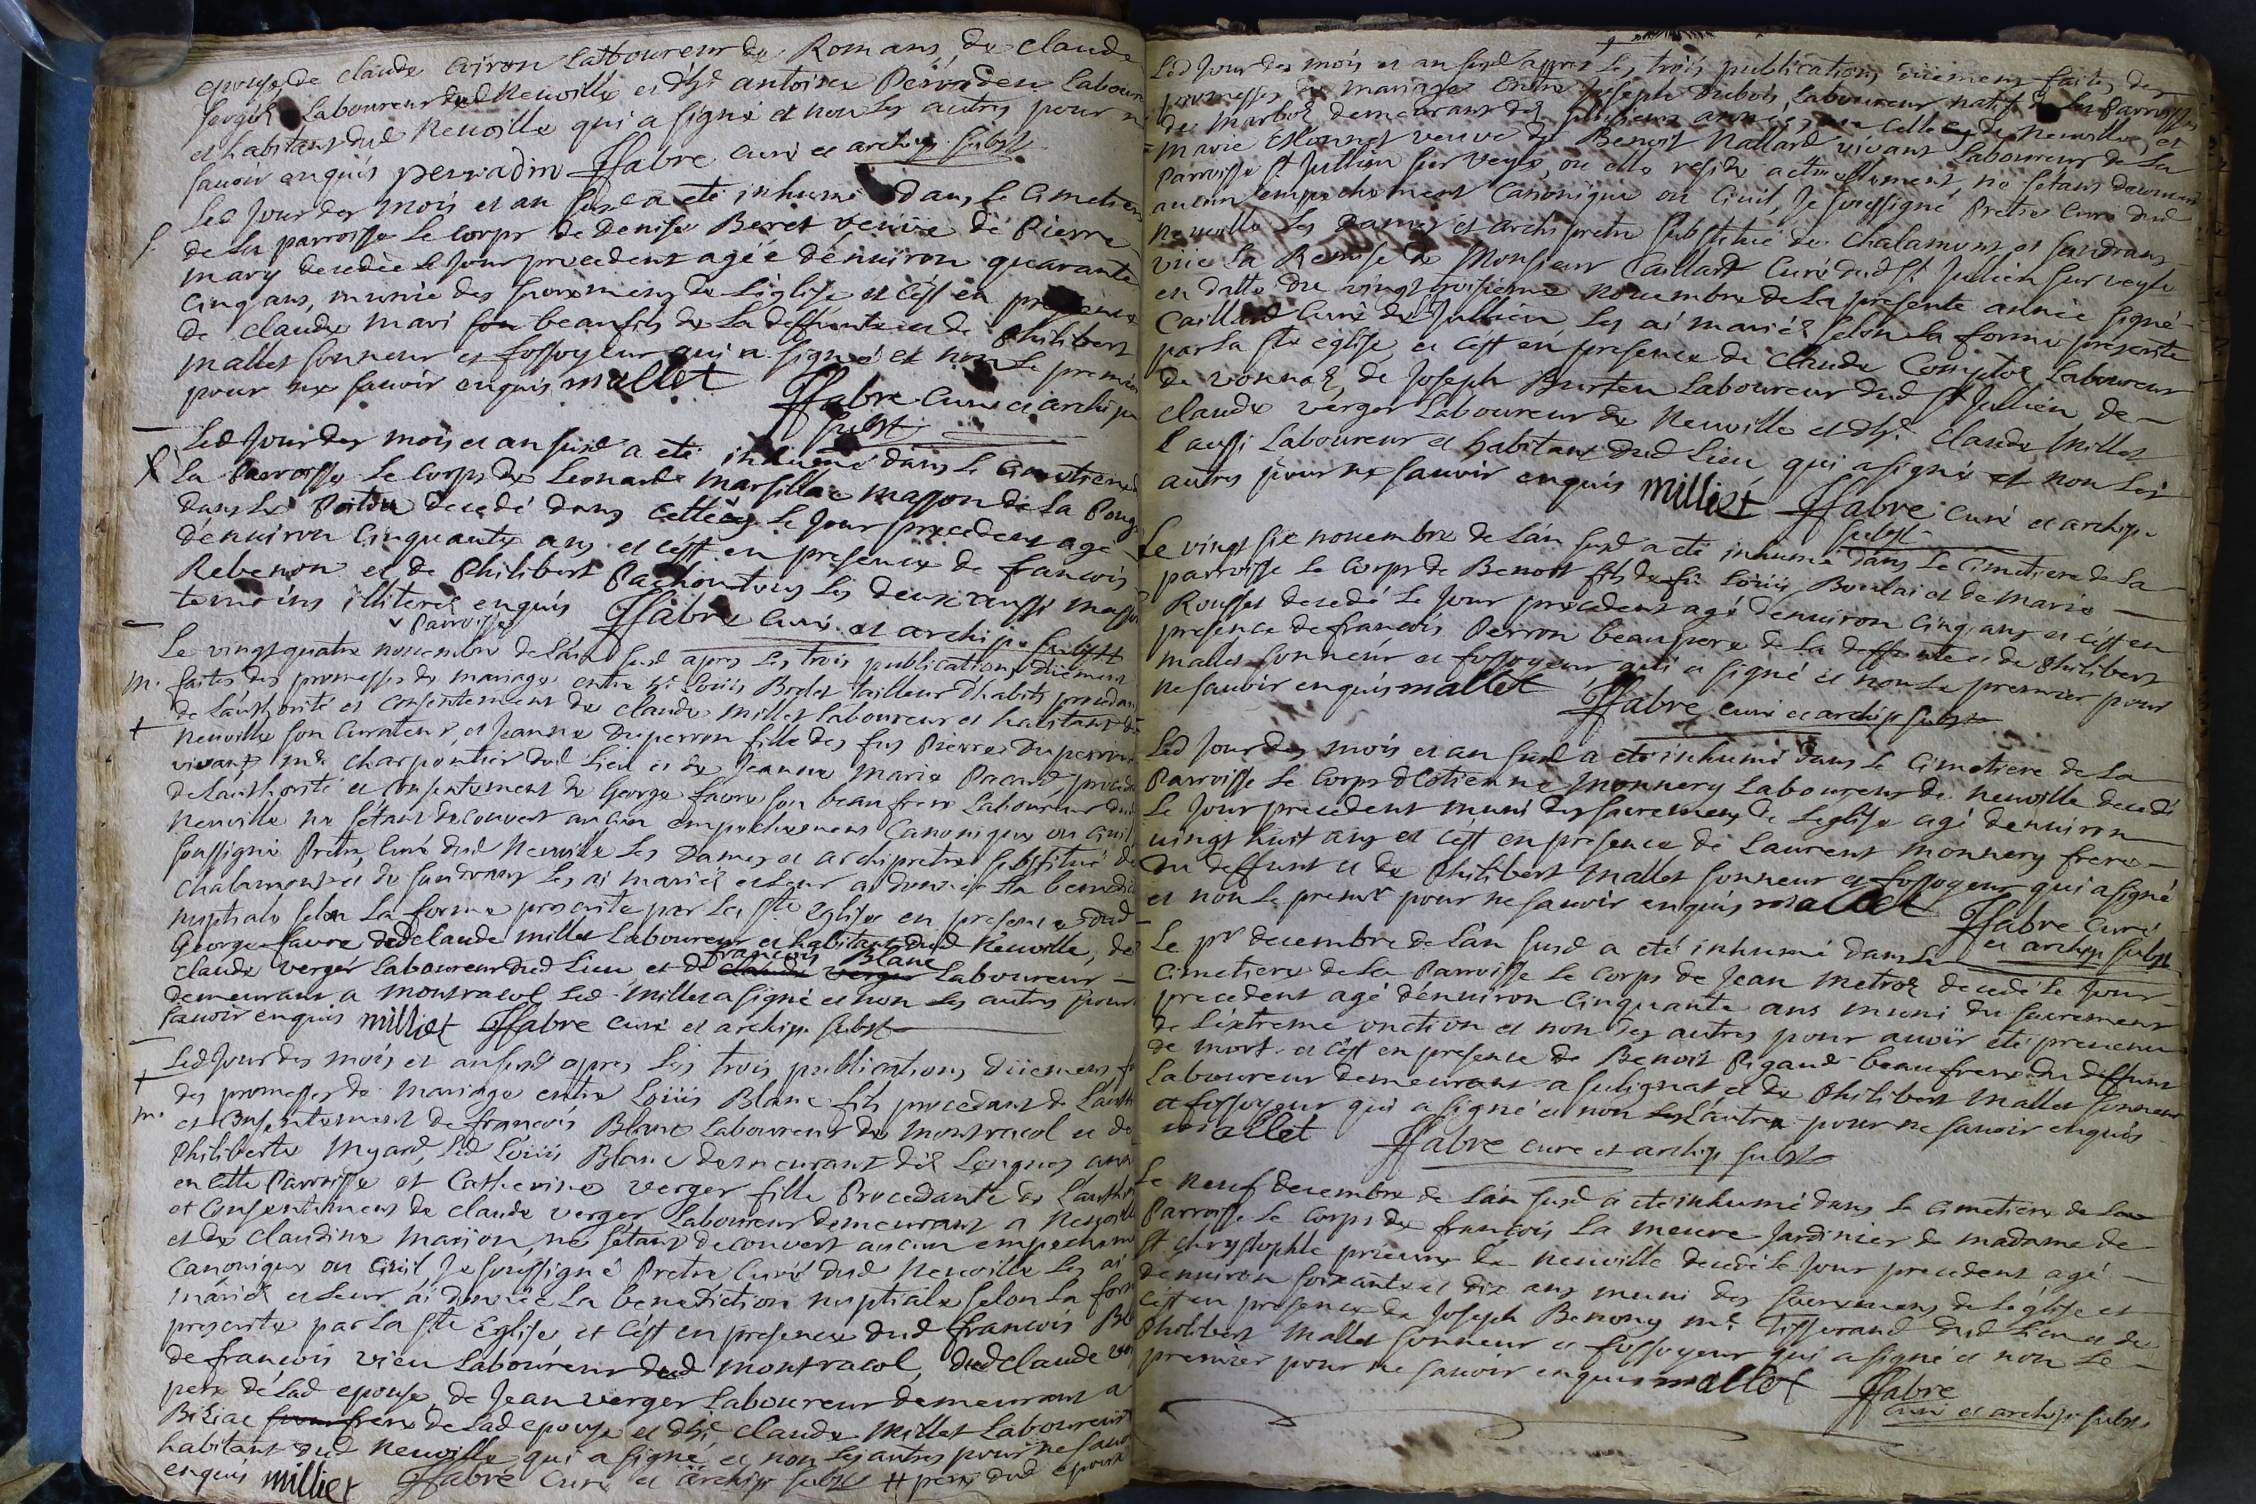 epouse, de claude Cojron Laboureur de Romans, de claude
Laboureur dud Neuville et d'ht antoine Perraden Labour
et habitant dud Neuville qui a signé et non les autres pour n
savoir enquis perradin Ffabre curé et archip. subst
Led Jour des mois et an susd a eté inhumé dans le Cimetier
S.
de la parroisse le corps de denise Beret veuve de Pierre
mary decedée le Jour precedent agée dénuiron quarante
cinq ans, munie des sacremens de L'eglise et c'est en presence
de claude mari beaufils de la deffunte et de Philibert
mallet sonneur et fossoyeur qui a signé et non le premier
pour ne savoir enquis mallet Ffabre curé et archip
subst
Led Jour des mois et an susd a eté inhumé dans le Cimetiere
La Parroisse le corps de Leonarde Marsillac masson de la
dans le Poitou decedé dans cette cy le Jour precedent agé
dénuiron Cinquante ans et c'est en presence de francois
Rebenon et de Philibert Pachon tous les deux aussi mass
temoins illiterés enquis Ffabre curé et archip. subst
v Parroisse
Le vingt quatre novembre de Lán susd apres les trois publications düement
m.
faites des promesses de mariage entre sr Loüis Bodet tailleur d'habits procedan
de Láuthorité et consentement de claude millet laboureur et habitant de
+
Neuville son Curateur, et Jeanne Duperron fille des fus Pierre Duperron
vivant me charpentier dud Lieu et de Jeanne Marie Pacard, proced
de Láuthorité et consentement de George favre son beaufrere Laboureur dud
Neuville ne s'etant decouvert aucun empechement Canonique ou civil
soussigné Pretre Curé dud Neuville les Dames et archipretre substitué de
Chalamont et de sandrans les ai mariés et leur ai donnée la benedic
nuptiale selon La forme prescrite par la ste eglise en presence dud
George favre dud claude millet Laboureur et habitant dud Neuville, de
francois Blanc
claude verger Laboureur dud Lieu et de claude verger Laboureur
demeurant a montracol Led millet a signé et non les autres pour
savoir enquis milliet Ffabre curé et archip. subst
Led Jour des mois et an susd apres les trois publications düement f
+
des promesses de mariage entre Loüis Blanc fils procedant de Lauth
m.
et consentement de francois Blanc Laboureur de montracol et de
Philiberte myard, Led Loüis Blanc demeurant dés Longues ann
en cette Parroisse et Catherine verger fille Procedante de Lauthor
et Consentement de claude verger Laboureur demeurant a Neuville
et de claudine Marion, ne s'étant decouvert aucun empechem
Canonique ou Civil Je soussigné Pretre Curé dud Neuville les ai
mariés et leur ai donnée la benediction nuptiale selon la form
prescrite par la ste Eglise et c'est en presence dud francois Bl
de francois vieu Laboureur dud montracol, dud claude ver
pere de lad epouse, de Jean verger Laboureur demeurant a
Biziac frere de lad epouse et d'ht claude Millet Laboureur
habitant dud Neuville qui a signé et non les autres pour ne sav
enquis milliet Ffabre curé et archip subst # pere dud epoux
Led Jour des mois et an susd apres les trois publications düement faites des
promesses de mariage entre Joseph Dubois, Laboureur natif de la Parroisse
de Marboz demeurant des plusieurs années en celle cy de Neuville, et
marie veuve de Benoit Nallard vivant Laboureur de la
Parroisse St Jullien sur veyle, ou elle reside actuellement, ne s'étant decouvert
aucun empechement canonique ou Civil, Je soussigné Pretre curé dud
Neuville les Dames et archipretre substitué de Chalamont et sandrans
vüe la Remise de Monsieur Caillard Curé dud St Jullien sur veyle
en datte du vingt troisieme novembre de la presente année signé
Caillard Curé de St Jullien, les ai mariés selon la forme prescrite
par la ste eglise et c'est en presence de claude Comptet Laboureur
de vonnas, de Joseph Burtin Laboureur dud St Jullien de
claude verger Laboureur de Neuville et d'ht claude Millet
aussi Laboureur et habitant dud Lieu qui a signé et non les
autres pour ne savoir enquis milliet Ffabre curé et archip.
subst
Le vingt six novembre de Lán susd a eté inhumé dans le cimetiere de la
parroisse le Corps de Benoit fils de fû Loüis Boulai et de marie
Rousset decedé le Jour precedent agé dénuiron cinq ans et c'est en
presence de francois Perron beaupere de la deffunte et de Philibert
mallet sonneur et fossoyeur qui a signé et non le premier pour
ne savoir enquis mallet Ffabre curé et archip subst
Led Jour des mois et an susd a eté inhumé dans le Cimetiere de la
Parroisse le Corps d'Estienne monnery Laboureur de Neuville decedé
le Jour precedent muni des sacremens de Leglise agé denuiron
vingt huit ans et c'est en presence de Laurent monnery frere
du deffunt et de Philibert Mallet sonneur et fossoyeur qui a signé
et non le premr pour ne savoir enquis mallet Ffabre curé
et archip subst
Le pr decembre de Lán susd a eté inhumé dans le
Cimetiere de la Parroisse le Corps de Jean Metroz decedé le Jour
precedent agé dénuiron Cinquante ans muni du sacrement
de L'extreme onction et non des autres pour avoir eté prevenu
de mort et c'est en presence de Benoit Rigaud beaufrere du deffunt
Laboureur demeurant a sulignat et de Philibert Mallet sonneur
et fossoyeur qui a signé et non L'autre pour ne savoir enquis
mallet Ffabre curé et archip subst
Le Neuf decembre de Lán susd a eté inhumé dans le cimetiere de la
Parroisse le Corps de francois La meure Jardinier de madame de
St chrystophle prieure de Neuville decedé le Jour precedent agé
dénuiron soixante et dix ans muni des sacremens de L'église et
c'est en presence de Joseph Benony me Tisserand dud Lieu et de
Philibert Mallet sonneur et fossoyeur qui a signé et non le
premier pour ne savoir enquis mallet Ffabre
curé et archip subst.